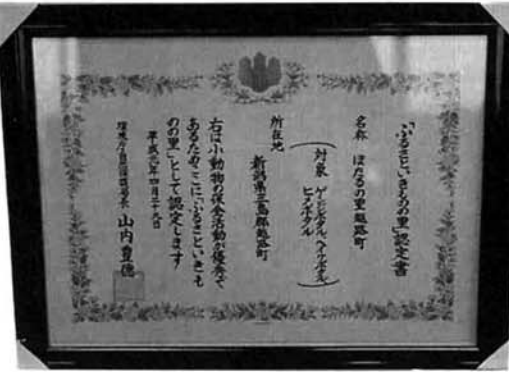 「ふるさといきものの里」認定書
名称　ほたるの里越路町
（対象　ゲンジボタル、ヘイケボタル、
ヒメボタル）
所在地
新潟県三島郡越路町
右は小動物の保全活動が優秀で
あるためここに「ふるさといきも
のの里」として認定します
平成元年四月二十九日
環境庁自然保護局長　山内豊徳